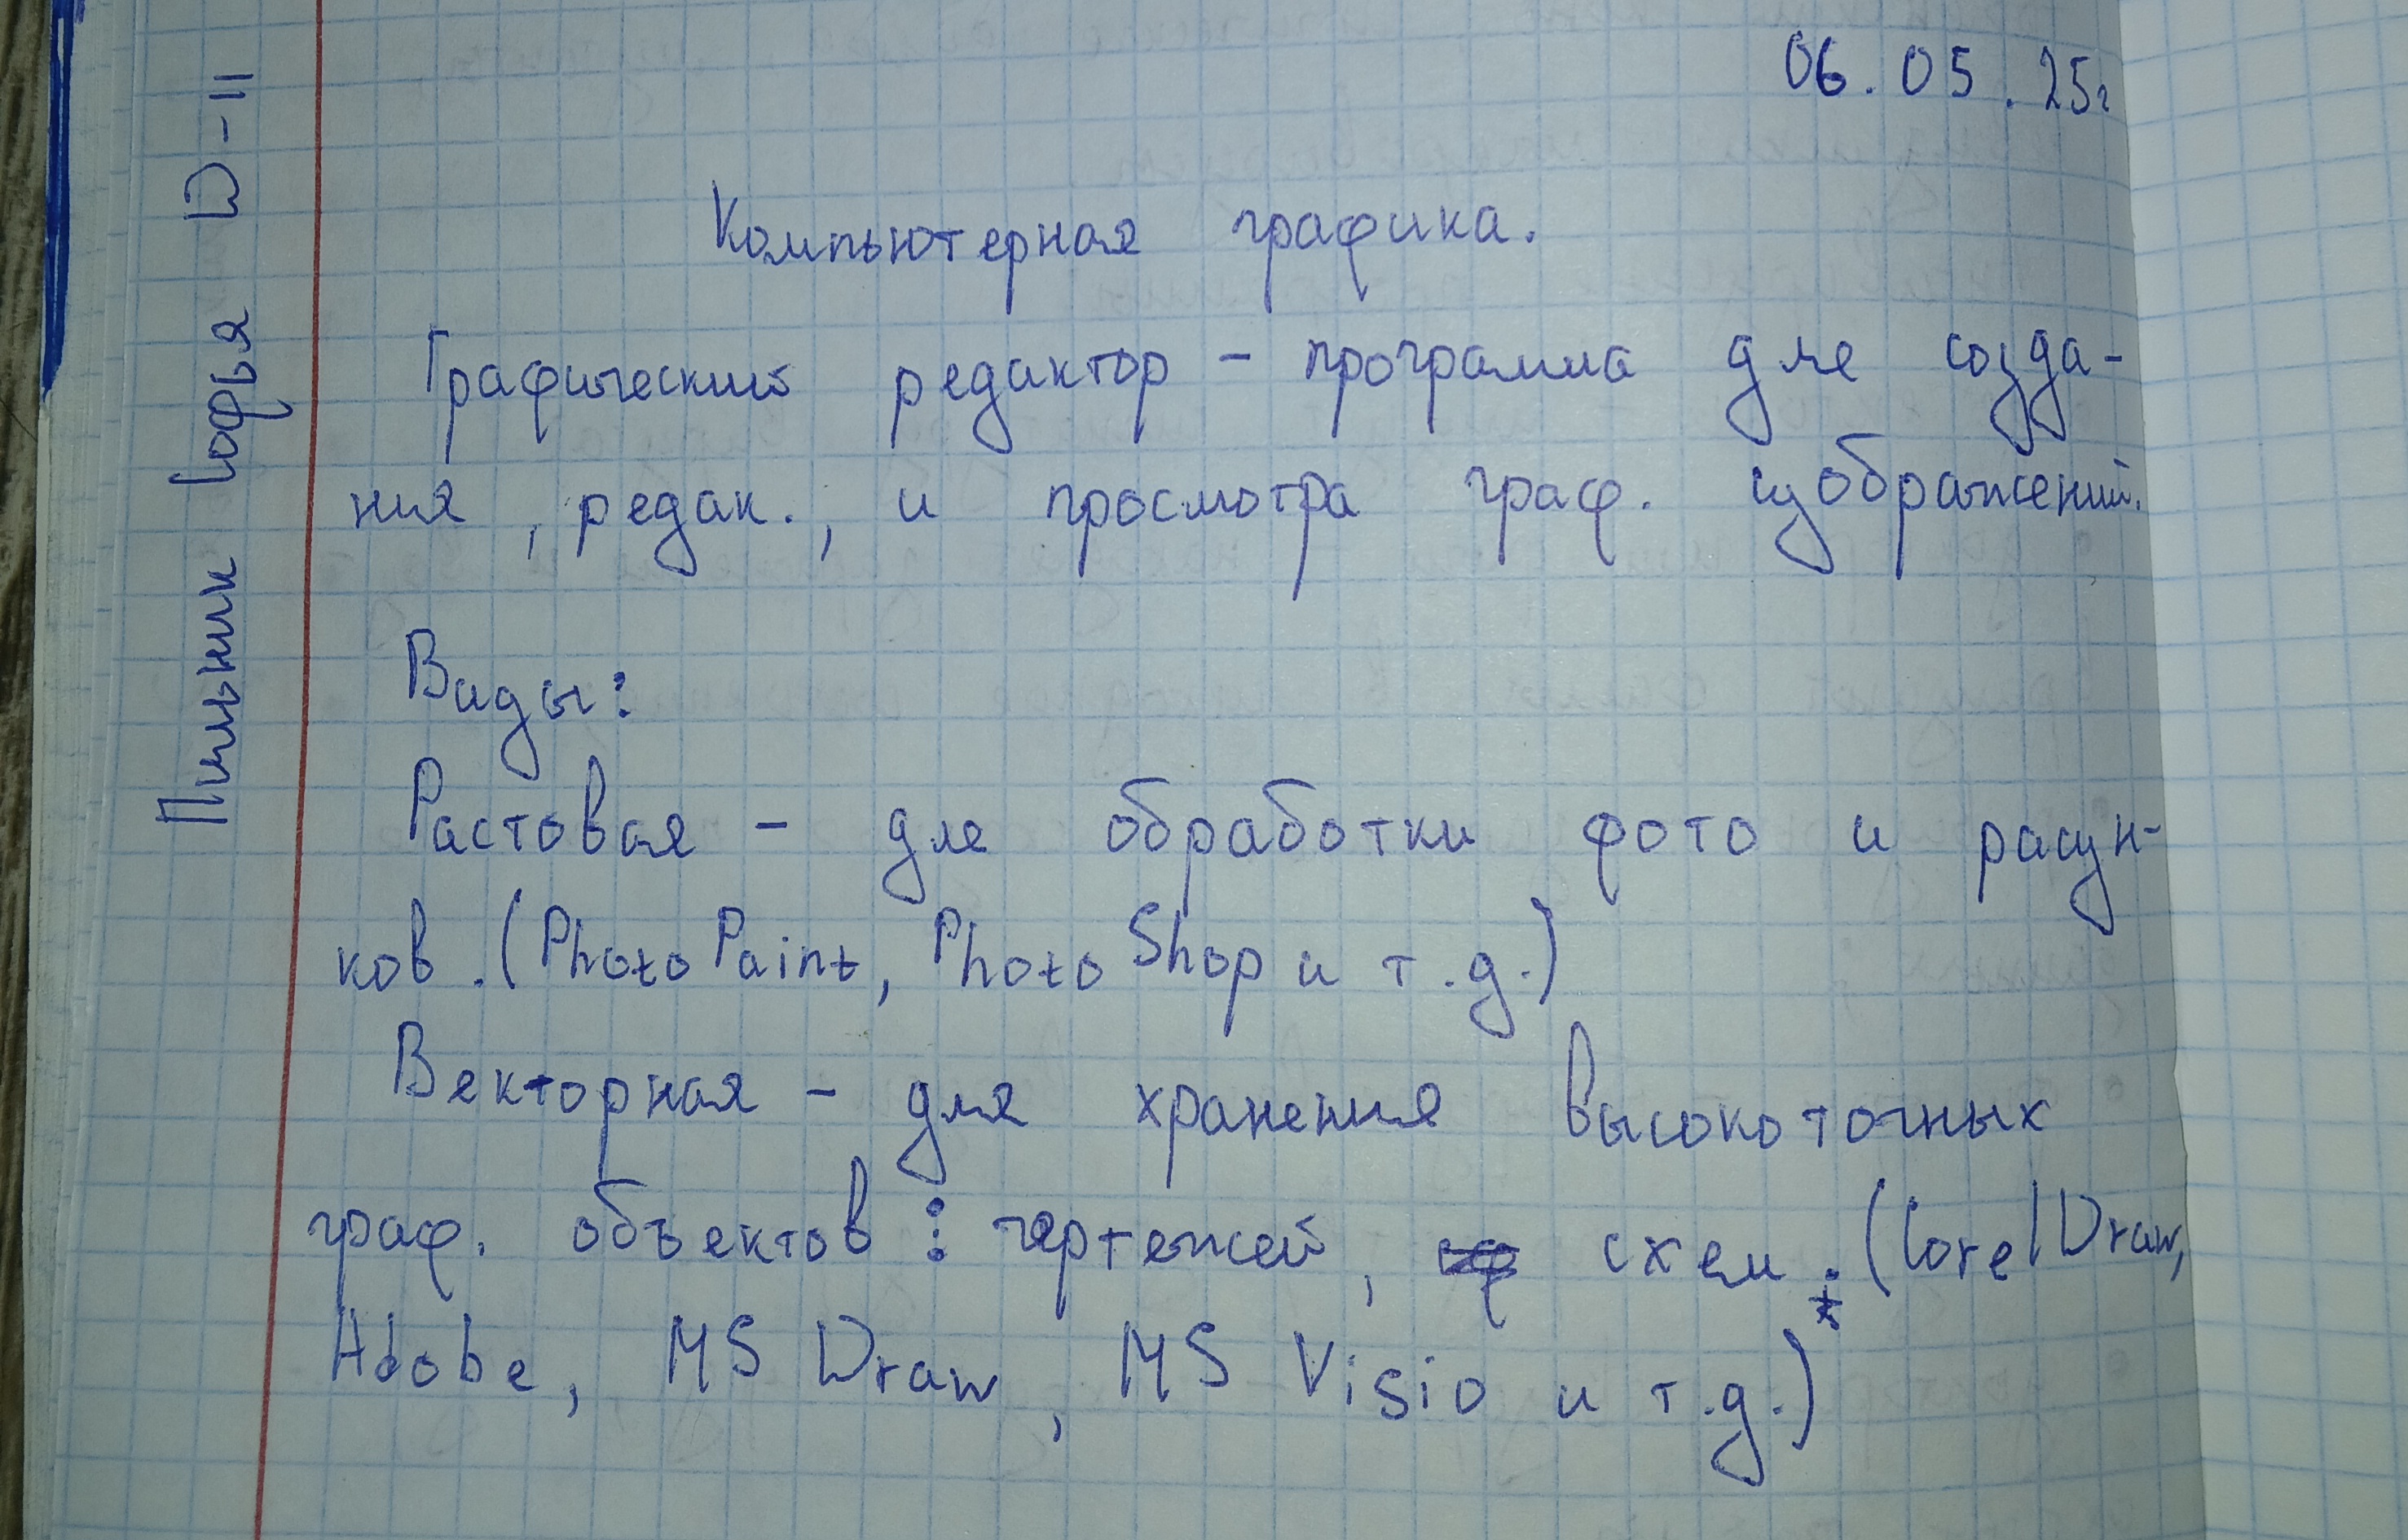 06.05.25г
Компьютерная графика.
Графический редактор – программа для созда-
ния, редак., и просмотра граф. изображений.
Виды:
Растовая – для обработки фото и расун-
ков. (PhotoPaint, PhotoShop и т.д.)
Векторная – для хранения высокоточных
граф. объектов: чертежей, схем. (CorelDraw,
Adobe, MS Draw, MS Visio и т.д.)
Пильник Софья D-11